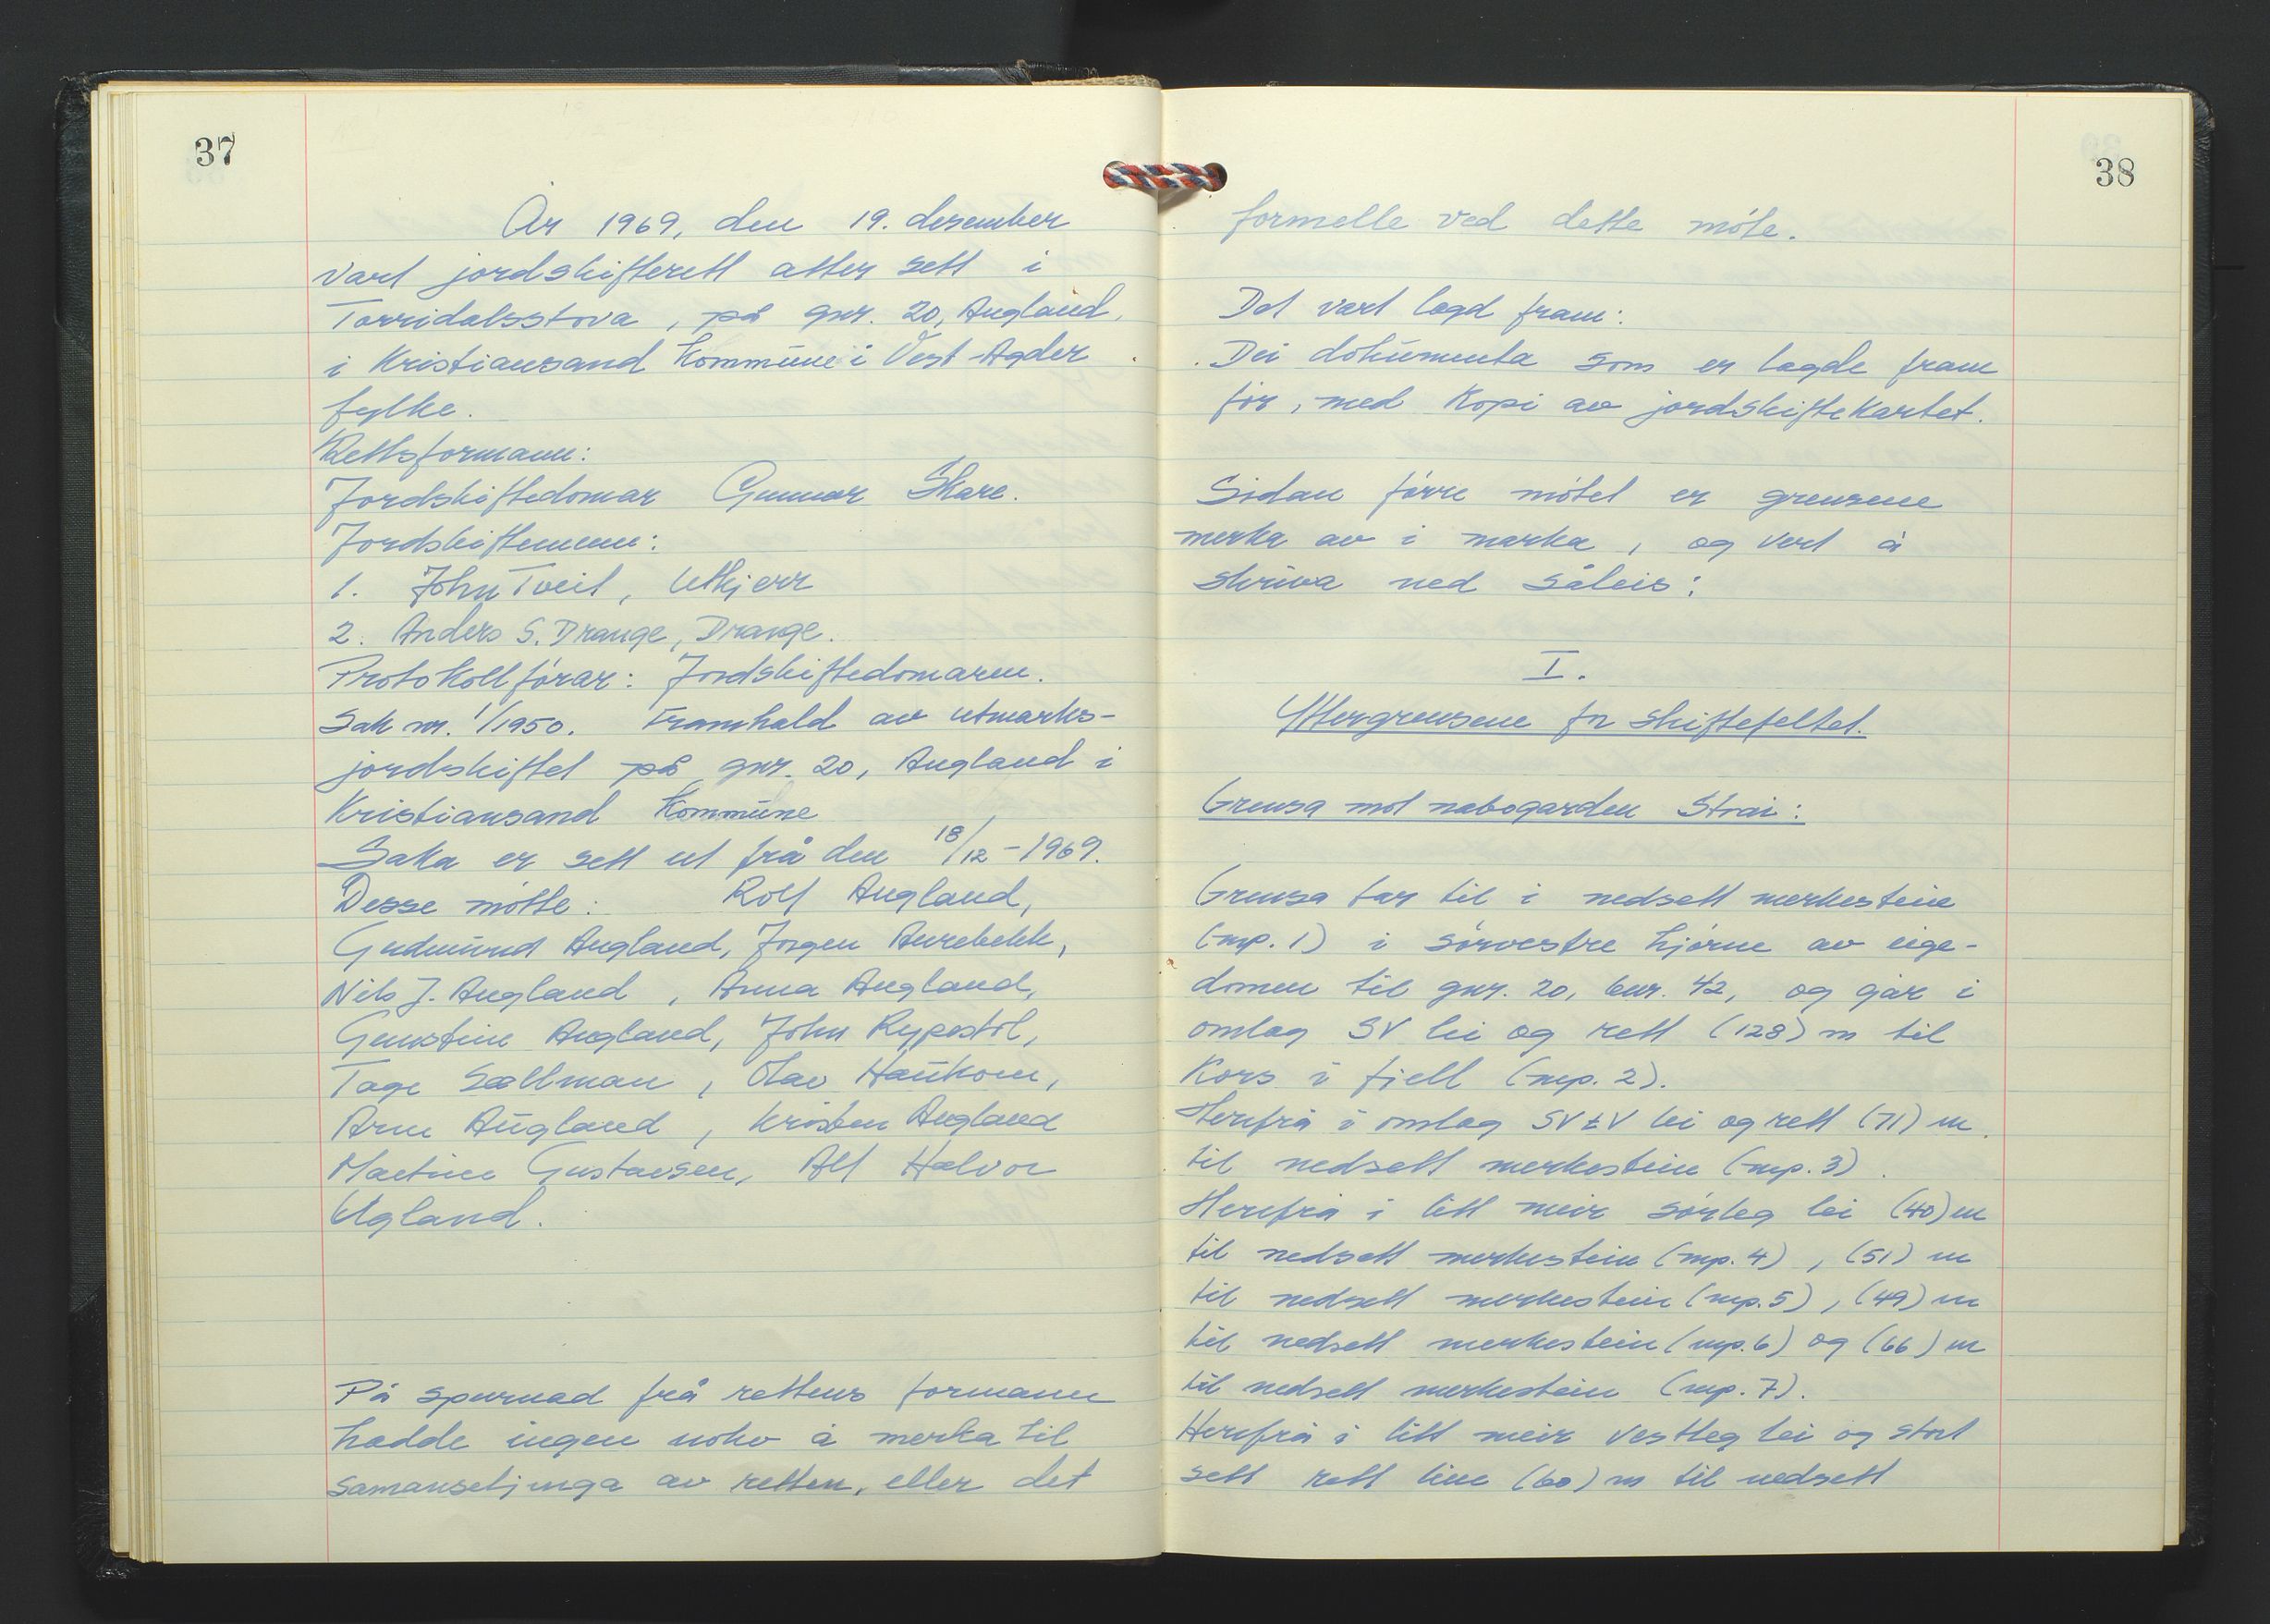 37
År 1969, den 19. desember
vart jordskifterett atter sett i
Torridalsstova, på gnr. 20, Augland,
i Kristiansand kommune i Vest-Agder
fylke.
Rettsformann:
Jordskiftedomar Gunnar Skare.
Jordskiftemenn:
1. John Tveit, Utkjerr
2. Anders S. Drange, Drange.
Protokollførar: Jordskiftedomaren.
Sak nr. 1/1950. Framhald av utmarks-
jordskiftet på gnr. 20, Augland i
Kristiansand Kommune
Saka er sett ut frå den 18/12-1969.
Desse møtte: Rolf Augland,
Gudmund Augland, Jørgen Aurebekk,
Nils J. Augland, Anna Augland,
Gunstein Augland, John Rypestøl,
Tage Sællman, Olav Haukom,
Arne Augland, Kristen Augland
Martin Gustavsen, Alf Halvor
Ugland.
På spurnad frå rettens formann
hadde ingen noko å merka til
samansetjinga av retten, eller det
38
formelle ved dette møte.
Det vart lagd fram:
Dei dokumenta som er lagde fram
før, med kopi av jordskiftekartet.
Sidan førre møtet er grensene
merka av i marka, og vert å
skriva ned såleis:
I.
Yttergrensene for skiftefeltet.
Grensa mot nabogarden Strai:
Grensa tar til i nedsett merkestein
(mp. 1) i sørvestre hjørne av eige-
domen til gnr. 20, bnr. 42, og går i
omlag SV lei og rett (128) m til
Kors i fjell (mp. 2).
Herifrå i omlag SVtV lei og rett (71) m
til nedsett merkestein (mp. 3).
Herifrå i litt meir sørleg lei (40) m
til nedsett merkestein (mp. 4), (51) m
til nedsett merkestein (mp. 5), (49) m
til nedsett merkestein (mp. 6) og (66) m
til nedsett merkestein (mp. 7).
Herifrå i litt meir vestleg lei og stort
sett rett line (60) m til nedsett